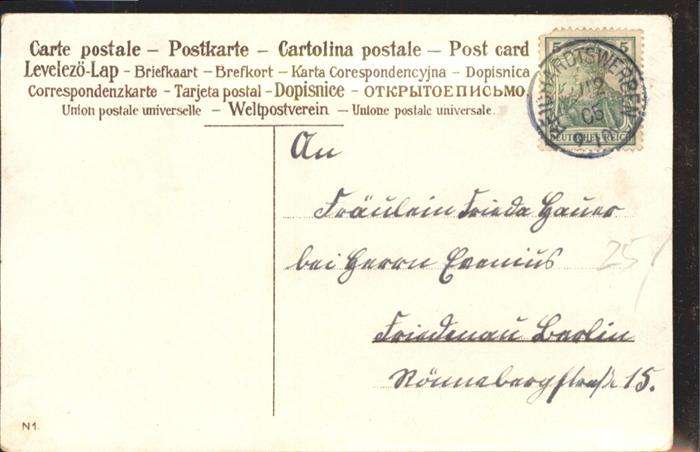 Carte postale – Postkarte – Cartolina postale – Post card
Levelezö-Lap – Briefkaart – Brefkort – Karta Corespondencyjna – Dopisnica
Correspondenzkarte – Tarjeta postal – Dopisnice – ОТКРЫТОЕПИСЬМО.
Union postale universelle – Weltpostverein – Unione postale universale.
5 5
DEUTSCHES REICH
05
An
Fräulein Frieda Hauer
bei Herrn Evenius
Friedenau Berlin
Rönnebergstraße 15.
25
N1.